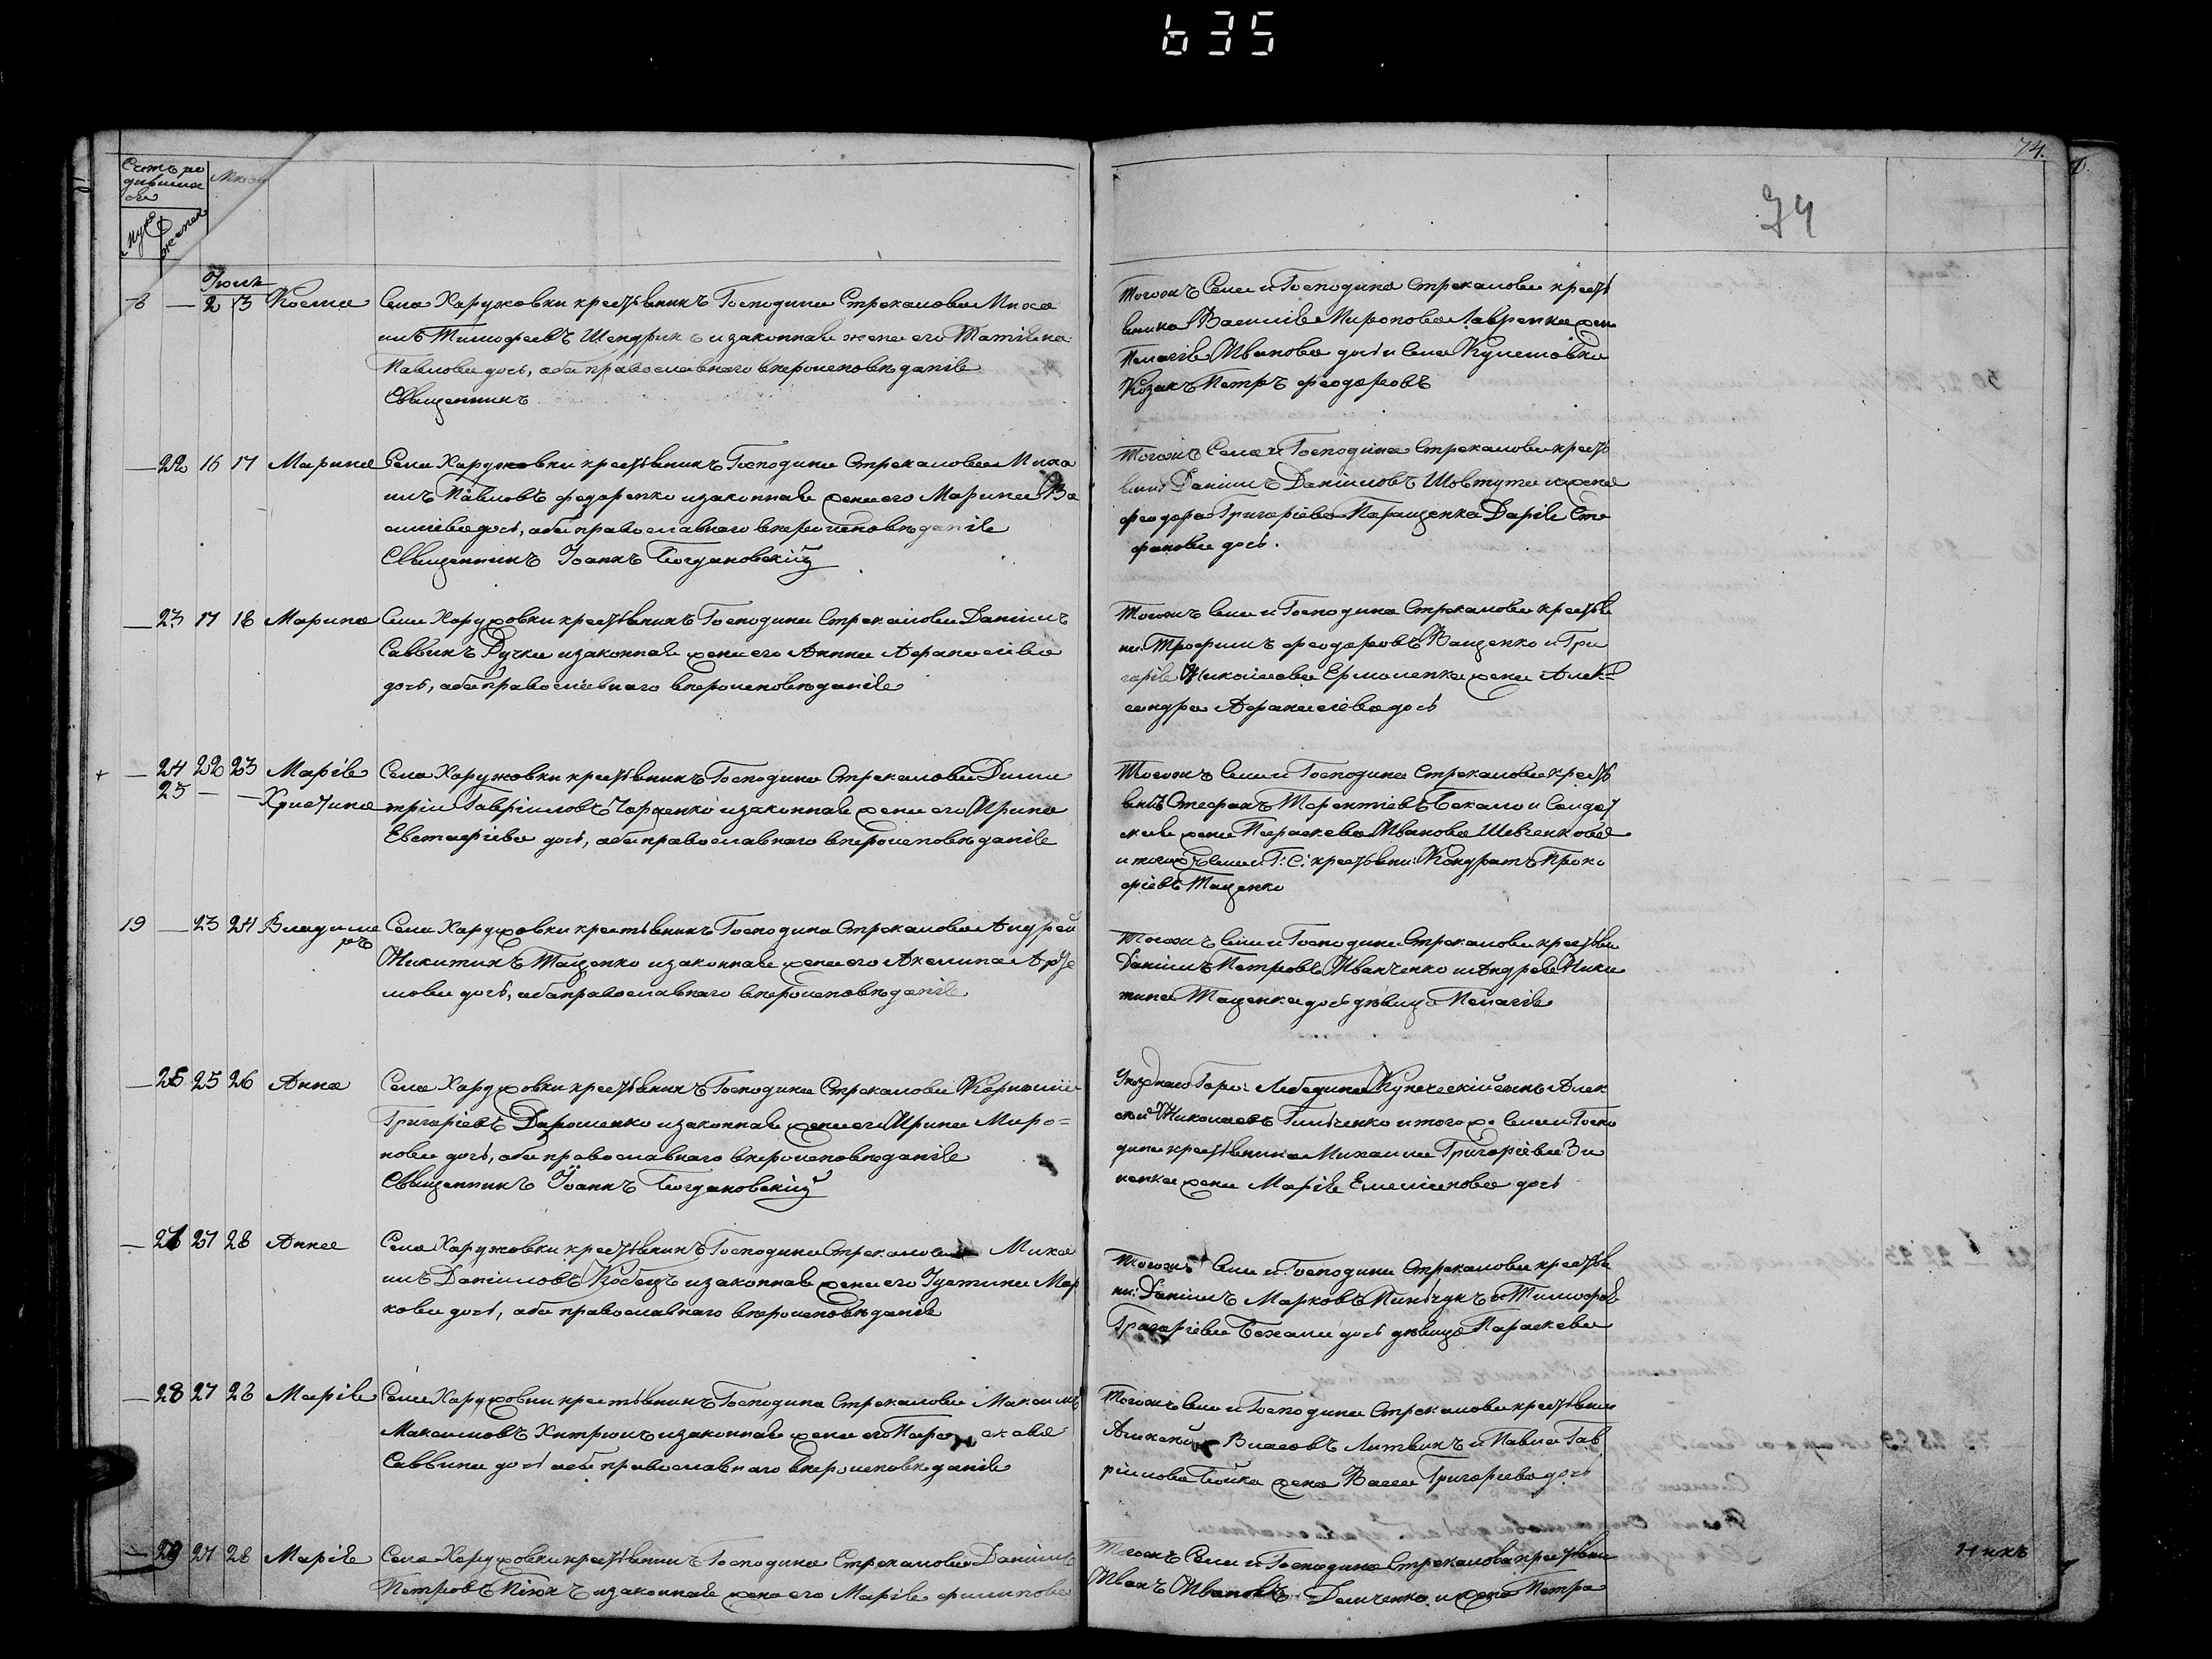 635
74.
74
Счетъ ро
дивших
ся
Муж
женск
Мѣся
Июля
— 2 3 Косма Села Харужовки крестьянинъ Господина Стрекалова Миха
илъ Тимофеевъ Шендрик и законная жена его Татіяна
Павлова дочь, оба православнаго вѣроисповѣданія
Священникъ
Тогожъ Села и Господина Стрекалова кресть
янина Василія Миронова Лавренка жена
Пелагія Иванова дочь и Села Кулешовки
Козакъ Петръ Феодоровъ
— 22 16 17 Марина Села Харужовки крестьянинъ Господина Стрекалова Миха
илъ Павловъ Федоренко и законная жена его Марина Ва
силіева дочь, оба православнаго вѣроисповѣданія
Священникъ Іоаннъ Богдановскій
Тогожъ Села и Господина Стрекалова кресть
янинъ Даніилъ Даніиловъ Шовтута и жена
Феодора Григоріева Паращенка Дарія Сте
фанова дочь.
— 23 17 18 Марина Села Харужовки крестьянинъ Господина Стрекалова Даніилъ
Саввинъ Ручка и законная жена его Анна Афанасіева
дочь, оба православнаго вѣроисповѣданія
Тогожъ села и Господина Стрекалова крестья
ни: Трофимъ Феодоровъ Ващенко и Гри
горія Николаева Ермоленка жена Алек=
сандра Афанасіева дочь
+ — 24 22 23 Марія Села Харужовки крестьянинъ Господина Стрекалова Дими
25 — — Христина трій Гавріиловъ Черненко и законная жена его Ирина
Евстафіева дочь, оба православнаго вѣроисповѣданія
Тогожъ села и Господина Стрекалова кресть
янъ Стефанъ Терентіевъ Бекало и солдат
ская жена Параскева Иванова Шевченкова
и тогожъ села и Г: С: крестьяни: Кондратъ Проко
фіевъ Таценко
19 — 23 24 Владими
ръ Села Харужовки крестьянинъ Господина Стрекалова Андрей
Никитинъ Таценко и законная жена его Акелина Арте
мова дочь, оба православнаго вѣроисповѣданія
Тогожъ села и Господина Стрекалова крестьяни
Даніилъ Петровъ Иванченко и Андрея Ники
тина Таценка дочь дѣвица Пелагія
— 26 25 26 Анна Села Харужовки крестьянинъ Господина Стрекалова Корнилій
Григоріевъ Дарошенко и законная жена его Ирина Миро=
нова дочь, оба православнаго вѣроисповѣданія
Священникъ Іоаннъ Богдановскій
Уѣзднаго Горо: Лебедина Купеческій сынъ Алек
сей Николаевъ Гильченко и того ж села и Госпо
дина крестьянина Михаила Григоріева Зи
ненка жена Марія Емеліянова дочь
— 27 27 28 Анна Села Харужовки крестьянинъ Господина Стрекалова Миха
илъ Даніиловъ Кобецъ и законная жена его Іустина Мар
кова дочь, оба православнаго вѣроисповѣданія
Тогожъ села и Господина Стрекалова крестья
ни: Даніилъ Марковъ Пинчукъ и Тимофея
Григоріева Бекала дочь дѣвица Параскева
— 28 27 28 Марія Села Харужовки крестьянинъ Господина Стрекалова Максимъ
Максимовъ Хитрюнъ и законная жена его Пара скава
Саввина дочь оба православнаго вѣроисповѣданія
Тогожъ села и Господина Стрекалова крестьяни
Алексей Власовъ Литвинъ и Павла Гав
ріилова Бойка жена Васса Григорьева дочь
— 29 27 28 Марія Села Харужовки крестьянинъ Господина Стрекалова Даніилъ
Петровъ и законная жена его Марія Филипова
Тогожъ Села и Господина Стрекалова крестьяни
Иванъ Ивановъ Демченко и жена Петра